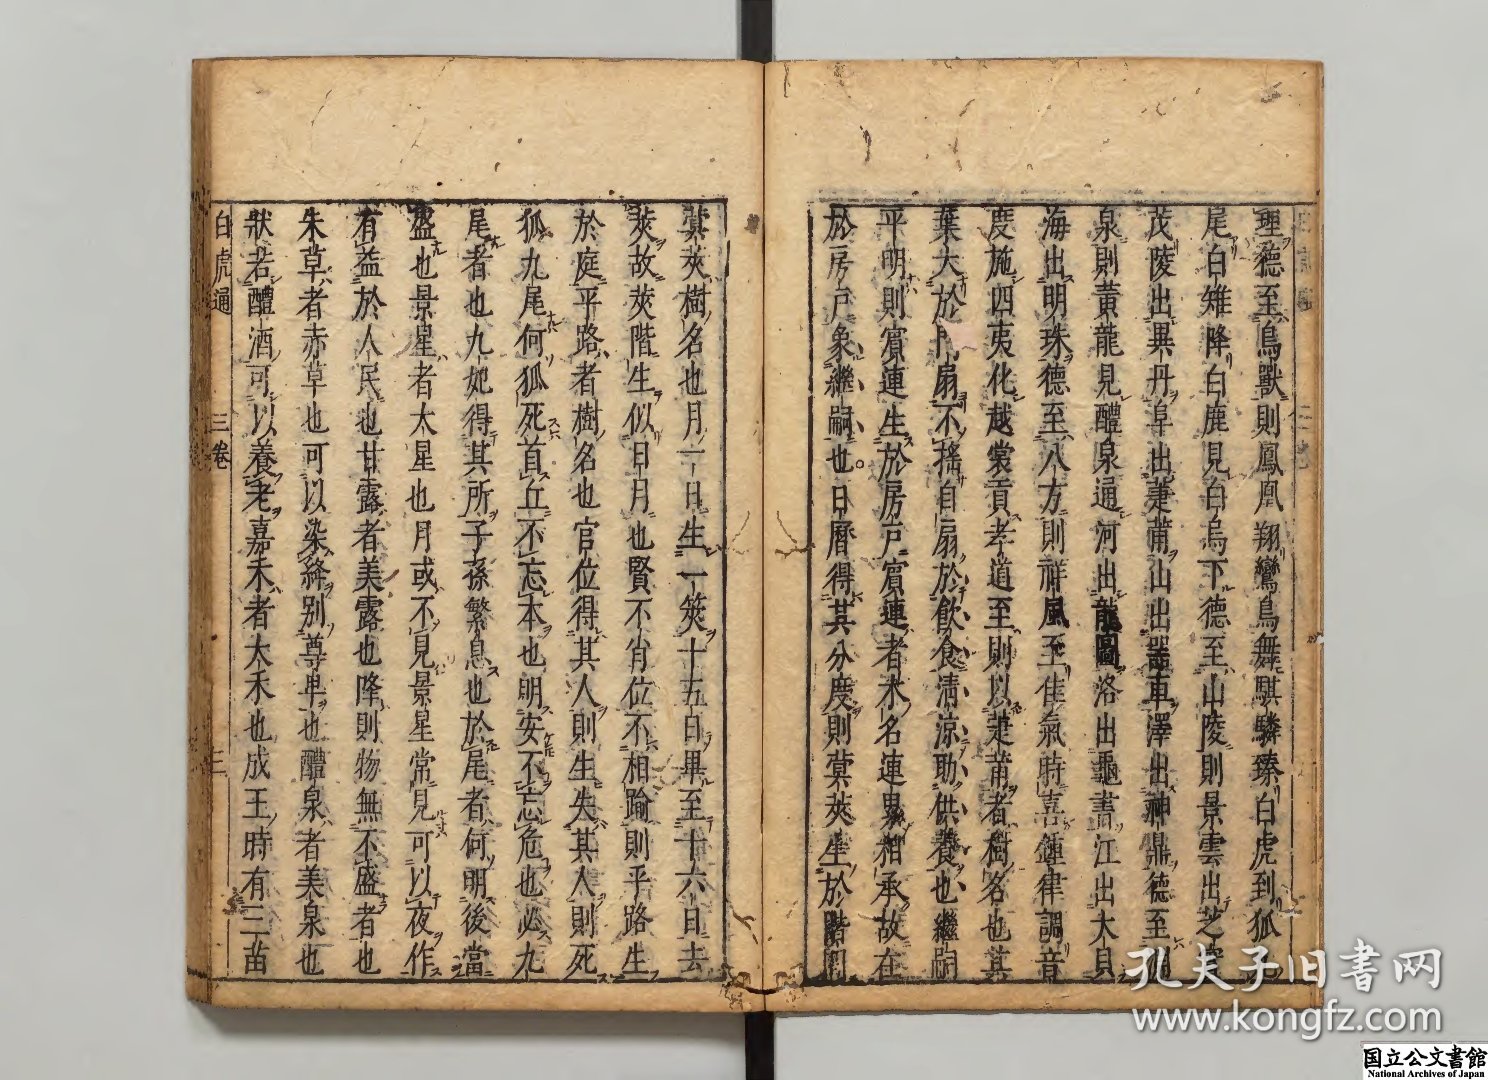 理德至鳥獸則鳳凰翔鸞鳥舞騏驎臻白虎到狐九
尾白雉降白鹿見白烏下德至山陵則景雲出芝實
茂陵出異丹阜出萐莆山出器車澤出神鼎德至淵
泉則黃龍見醴泉通河出龍圖洛出龜書江出大貝
海出明珠德至八方則祥風至佳氣時喜鍾律調音
度施四夷化越裳貢孝道至則以萐莆者樹名也其
葉大於門扇不搖自扇於飲食清涼助供養也繼嗣
平明則賓連生於房戶賓連者木名連累相承故在
於房戶象繼嗣也日曆得其分度則蓂莢生於階間
蓂莢樹名也月一日生一莢十五日畢至十六日去
莢故莢階生似日月也賢不肖位不相踰則平路生
於庭平路者樹名也官位得其人則生失其人則死
狐九尾何狐死首丘不忘本也明安不忘危也必九
尾者也九妃得其所子孫繁息也於尾者何明後當
盛也景星者大星也月或不見景星常見可以夜作
有益於人民也甘露者美露也降則物無不盛者也
朱草者赤草也可以染絳別尊卑也醴泉者美泉也
狀若醴酒可以養老嘉禾者大禾也成王時有三苗
白虎通 三卷 三
孔夫子旧書网
www.kongfz.com
国立公文書館
National Archives of Japan